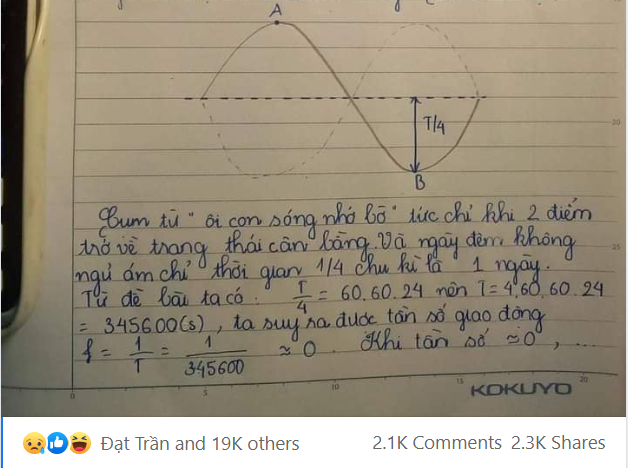 A
T/4
B
Cụm từ " ôi con sóng nhớ bờ " tức chỉ khi 2 điểm
trở về trạng thái cân bằng. Và ngày đêm không
ngủ ám chỉ thời gian 1/4 chu kì là 1 ngày.
Từ đề bài ta có. T/4 = 60.60.24 nên T = 4.60.60.24
= 345600(s), ta suy sa được tần số giao động
f = 1/T = 1/345600 ≈ 0. Khi tần số ≈ 0, ...
20
25
0 5 10 15 20
KOKUYO
Đạt Trần and 19K others 2.1K Comments 2.3K Shares